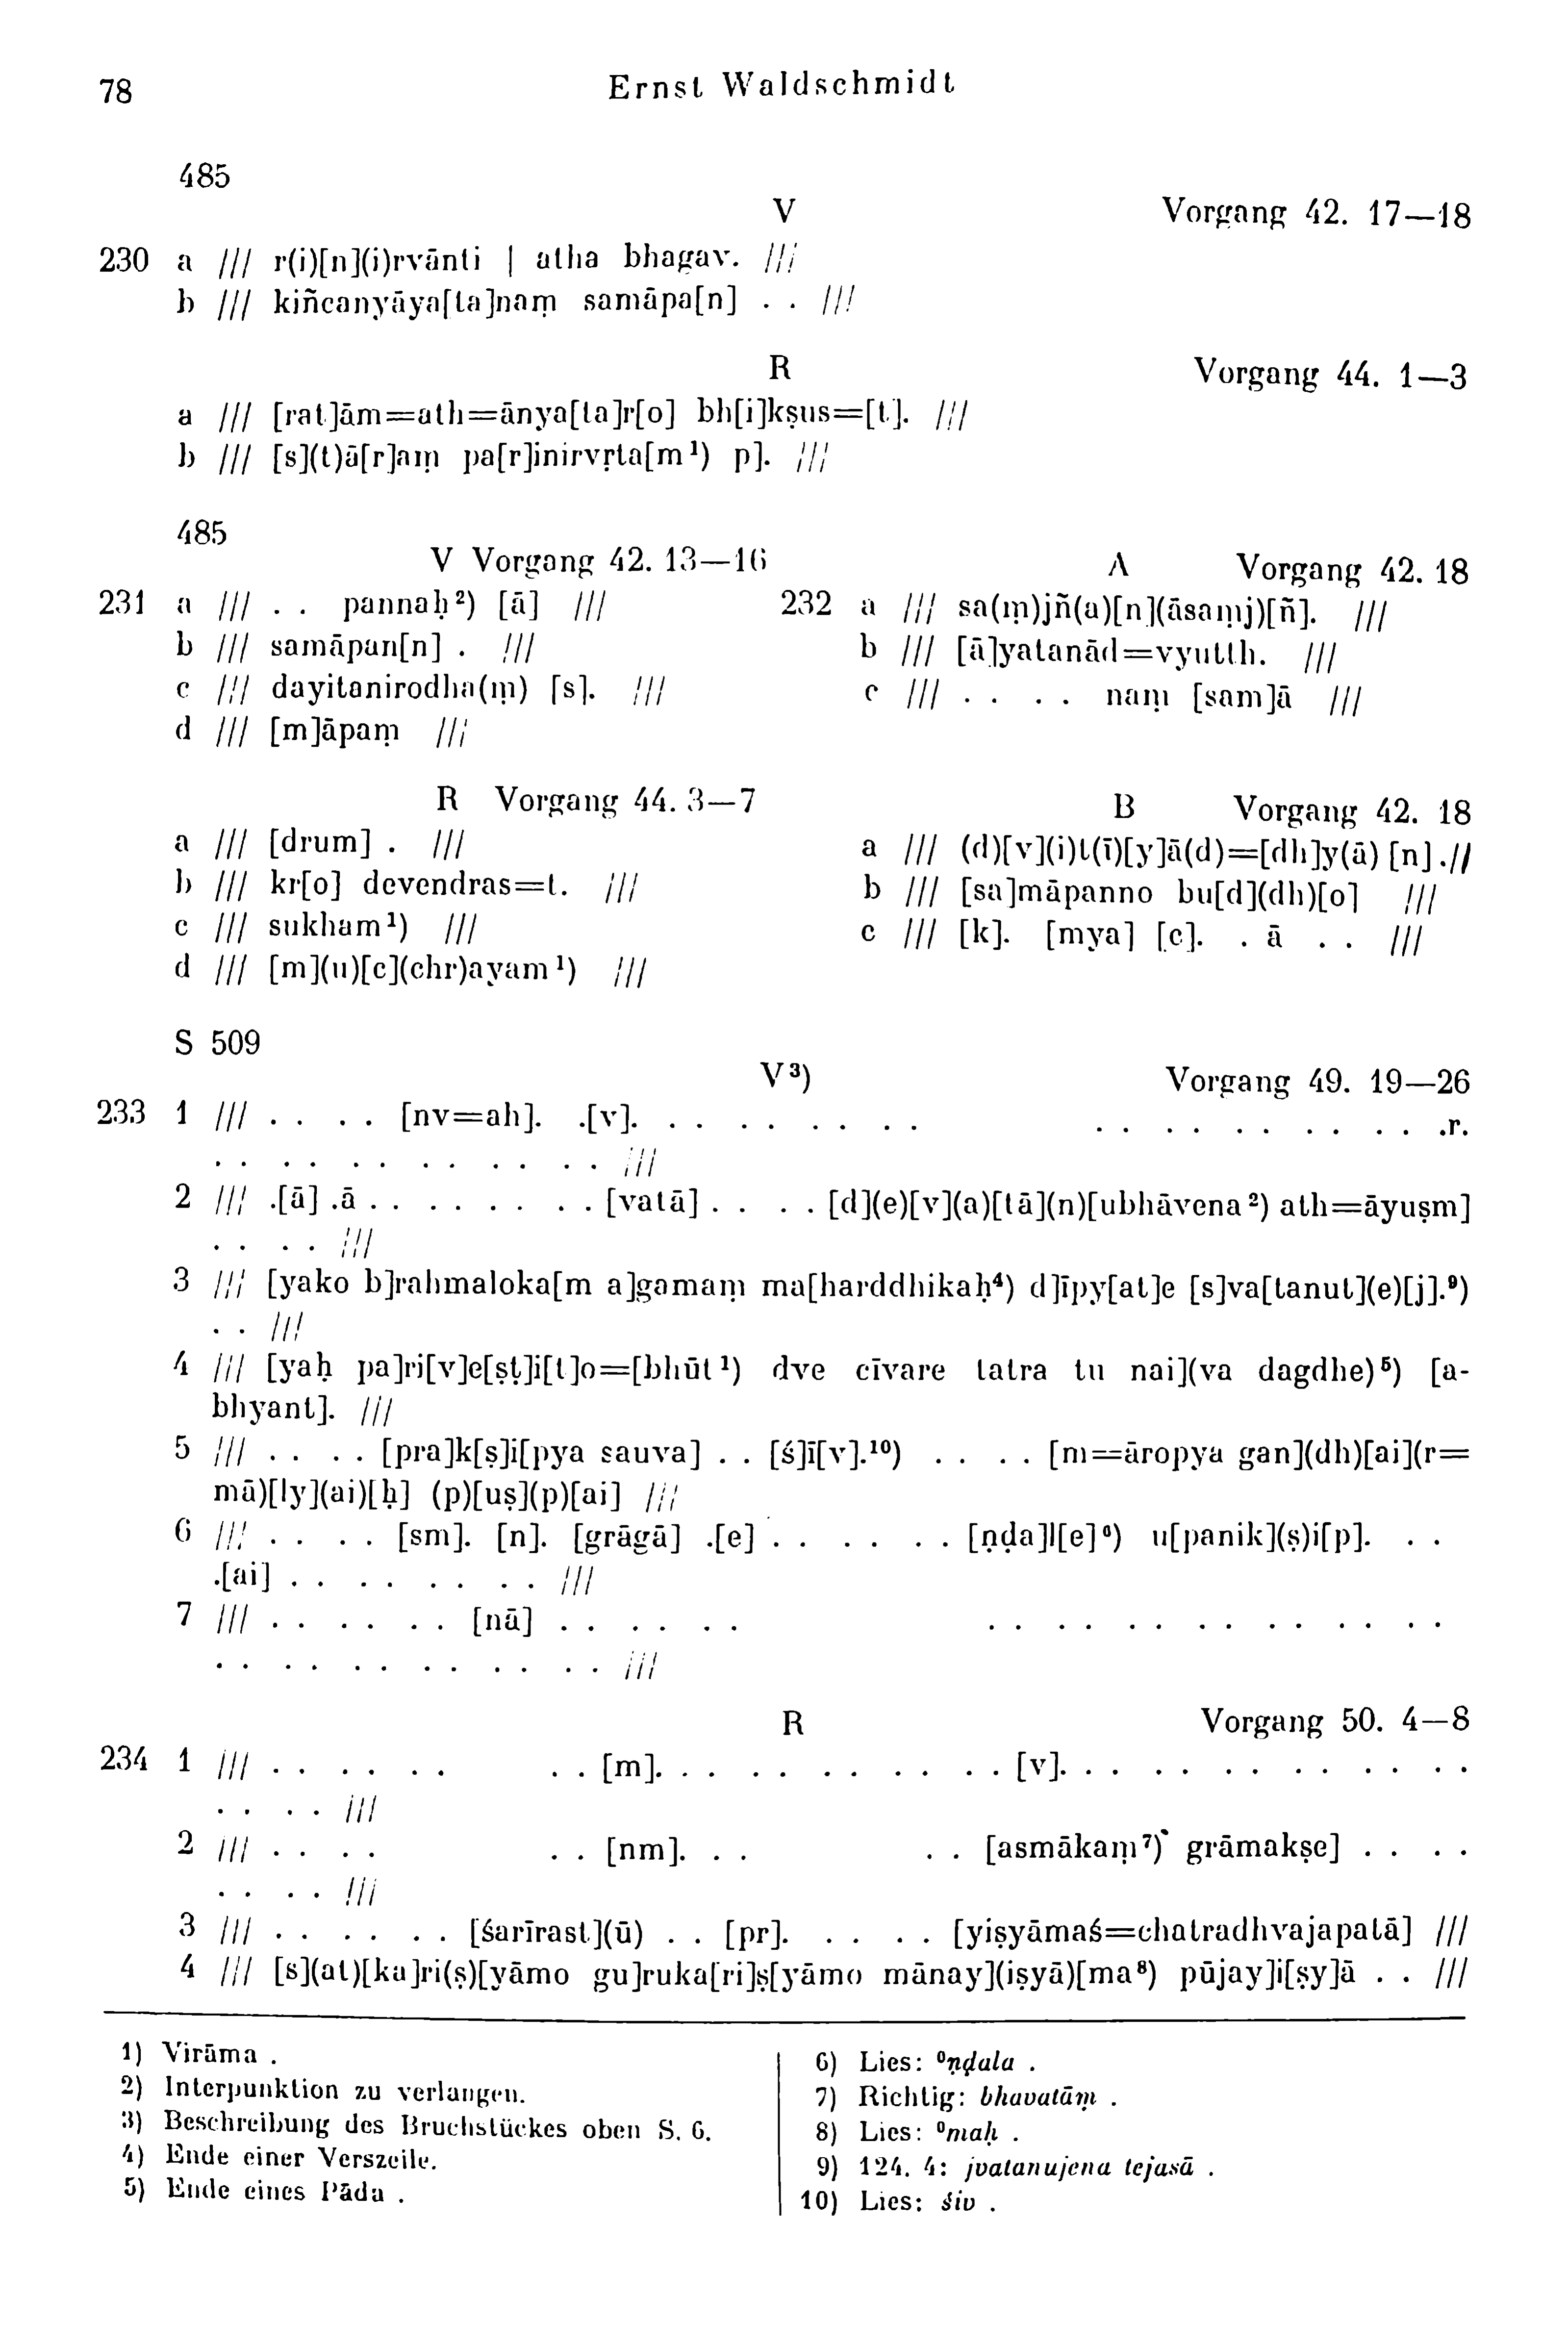 78 Ernst Waldschmidt
485
V Vorgang 42. 17—18
230 a /// r(i)[n](i)rvānti | atha bhagav. ///
b /// kiñcanyāya[ta]naṃ samāpa[n] . . ///
R Vorgang 44. 1—3
a /// [rat]ām=ath=ānya[ta]r[o] bh[i]kṣus=[t]. ///
b /// [s](t)ā[r]aṃ pa[r]inirvṛta[m¹) p]. ///
485
V Vorgang 42. 13—16
231 a /// . . pannaḥ²) [ā] ///
b /// samāpan[n] . ///
c /// dayitanirodha(ṃ) [s]. ///
d /// [m]āpaṃ ///
A Vorgang 42. 18
232 a /// sa(ṃ)jñ(a)[n](āsaṃj)[ñ]. ///
b /// [ā]yatanād=vyutth. ///
c /// . . . . naṃ [sam]ā ///
R Vorgang 44. 3—7
a /// [drum] . ///
b /// kr[o] devendras=t. ///
c /// sukham¹) ///
d /// [m](u)[c](chr)ayam¹) ///
B Vorgang 42. 18
a /// (d)[v](i)t(ī)[y]ā(d)=[dh]y(ā) [n] .//
b /// [sa]māpanno bu[d](dh)[o] ///
c /// [k]. [mya] [c]. . ā . . ///
S 509
V³) Vorgang 49. 19—26
233 1 /// . . . . [nv=ah]. .[v]. . . . . . . . . . . . . . . . . . . .r.
. . . . . . . . . . . . ///
2 /// .[ā] .ā . . . . . . . . [vatā] . . . . [d](e)[v](a)[tā](n)[ubhāvena²) ath=āyuṣm]
. . . . ///
3 /// [yako b]rahmaloka[m a]gamaṃ ma[harddhikaḥ⁴) d]īpy[at]e [s]va[tanut](e)[j].⁹)
. . ///
4 /// [yaḥ pa]ri[v]e[ṣṭ]i[t]o=[bhūt¹) dve cīvare tatra tu nai](va dagdhe)⁵) [a-
bhyant]. ///
5 /// . . . . [pra]k[ṣ]i[pya sauva] . . [ś]ī[v].¹⁰) . . . . [m=āropya gan](dh)[ai](r=
mā)[ly](ai)[ḥ] (p)[uṣ](p)[ai] ///
6 /// . . . . [sm]. [n]. [grāgā] .[e] . . . . . . [ṇḍa]l[e]⁶) u[panik](ṣ)i[p]. . .
.[ai] . . . . . . . . ///
7 /// . . . . . . [nā] . . . . . . . . . . . . . . . . . . . .
. . . . . . . . . . . . ///
R Vorgang 50. 4—8
234 1 /// . . . . . . . . [m]. . . . . . . . . . . [v]. . . . . . . . . . . . .
. . . . ///
2 /// . . . . . . [nm]. . . . . [asmākaṃ⁷) grāmakṣe] . . . .
. . . . ///
3 /// . . . . . . [śarīrast](ū) . . [pr]. . . . . [yiṣyāmaś=chatradhvajapatā] ///
4 /// [s](at)[ka]ri(ṣ)[yāmo gu]ruka[ri]ṣ[yāmo mānay](iṣyā)[ma⁸) pūjay]i[ṣy]ā . . ///
1) Virāma .
2) Interpunktion zu verlangen.
3) Beschreibung des Bruchstückes oben S. 6.
4) Ende einer Verszeile.
5) Ende eines Pāda .
6) Lies: ⁰ṇḍala .
7) Richtig: bhavatāṃ .
8) Lies: ⁰maḥ .
9) 124. 4: jvatanujena tejasā .
10) Lies: śiv .